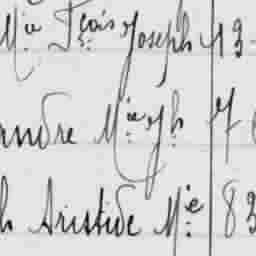 Mie Fçois Joseph 13-
andre Mie Jh 7
h Aristide Mie 83